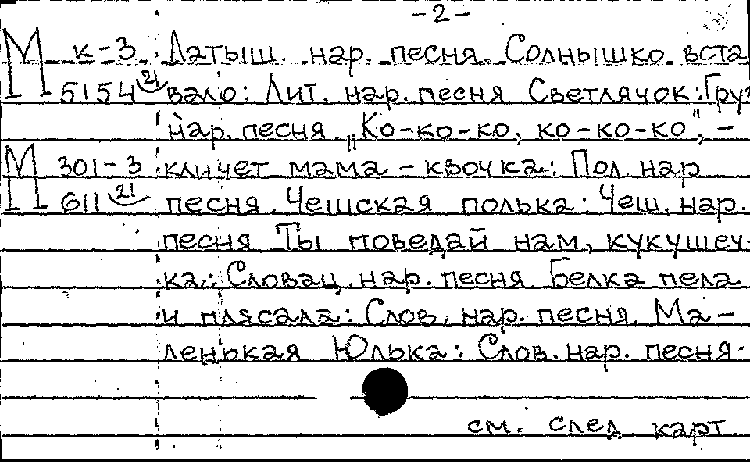 -2-
М к-3 Латыш. нар. песня. Солнышко вста
5154 21 вало: Лит. нар. песня Светлячок: Груз
нар. песня. „Ко-ко-ко, ко-ко-ко“, -
М 301-3 кличет мама - квочка: Пол. нар
611 21 песня. Чешская полька: Чеш. нар.
песня Ты поведай нам, кукушеч-
ка: Словац. нар. песня. Белка пела
и плясала: Слов. нар. песня. Ма-
ленькая Юлька: Слов. нар. песня.
см. след карт